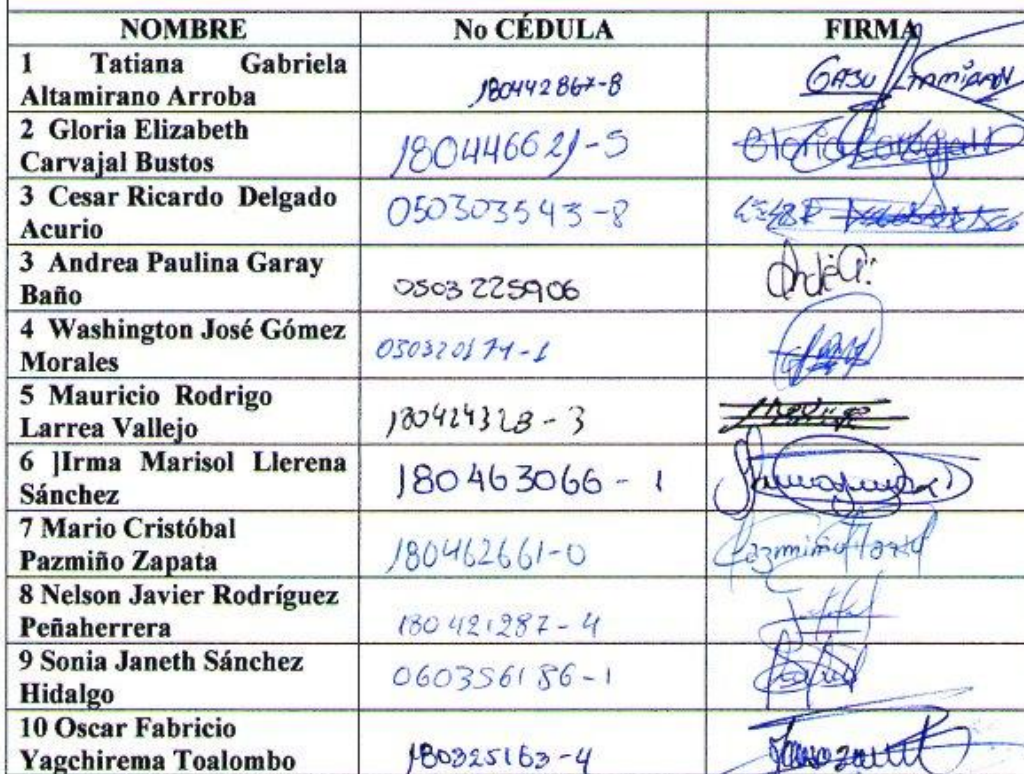 NOMBRE No CÉDULA FIRMA
1 Tatiana Gabriela
Altamirano Arroba 180442867-8
2 Gloria Elizabeth
Carvajal Bustos 180446621-5 Gloria Carvajal
3 Cesar Ricardo Delgado
Acurio 050303543-8
3 Andrea Paulina Garay
Baño 0503225906
4 Washington José Gómez
Morales
5 Mauricio Rodrigo
Larrea Vallejo 180424328-3
6 ]Irma Marisol Llerena
Sánchez 180463066-1
7 Mario Cristóbal
Pazmiño Zapata 180462661-0 Pazmiño Mario
8 Nelson Javier Rodríguez
Peñaherrera 180421287-4
9 Sonia Janeth Sánchez
Hidalgo 060356186-1
10 Oscar Fabricio
Yagchirema Toalombo 180325163-4